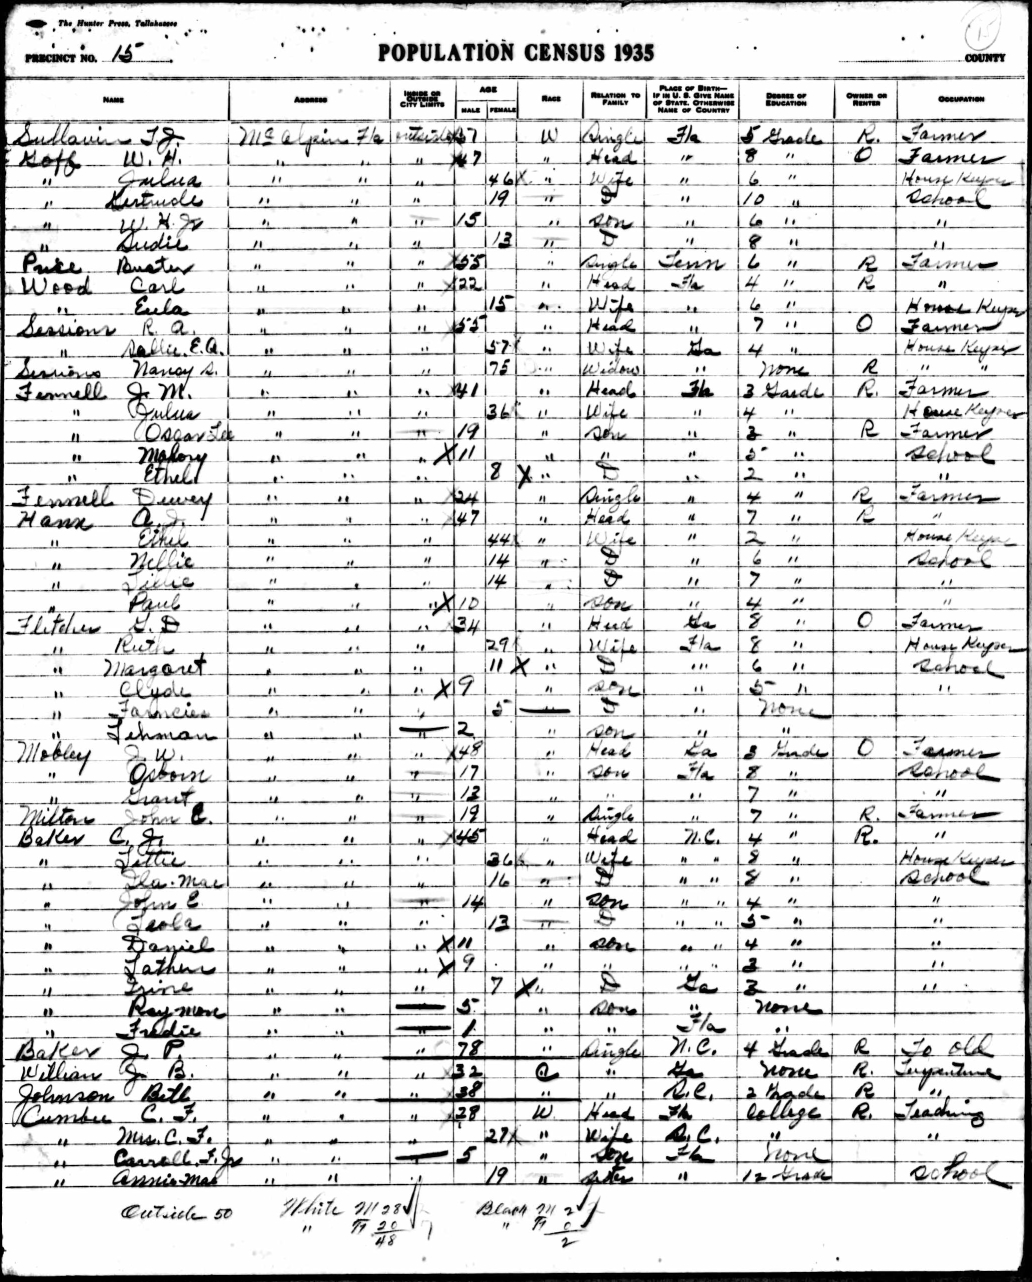 The Hunter Press, Tallahassee
15
PRECINCT NO. 15 POPULATION CENSUS 1935 COUNTY
NAME ADDRESS INSIDE OR OUTSIDE CITY LIMITS AGE MALE FEMALE RACE RELATION TO FAMILY PLACE OF BIRTH— IF IN U. S. GIVE NAME OF STATE. OTHERWISE NAME OF COUNTRY DEGREE OF EDUCATION OWNER OR RENTER OCCUPATION
T. J. McAlpin Fla outside 37 W Single Fla 5 Grade R. Farmer
Goff W. H. " " " 47 " Head " 8 " O Farmer
" Julua " " " 46 " Wife " 6 " House Keyper
" Gertrude " " " 19 " D " 10 " School
" W. H. Jr " " " 15 " son " 6 " "
" Sudie " " " 13 " D " 8 " "
Price Buster " " " 55 " Single Tenn 6 " R Farmer
Wood Carl " " " 22 " Head Fla 4 " R "
" Eula " " " 15 " Wife " 6 " House Keyper
Sessions R. A. " " " 55 " Head " 7 " O Farmer
" Sallie E. A. " " " 57 " Wife Ga 4 " House Keyper
Sessions Nancy S. " " " 75 " Widow " None R " "
Fennell J. M. " " " 41 " Head Fla 3 Garde R. Farmer
" Julua " " " 36 " Wife " 4 " House Keyper
" Oscar Lee " " " 19 " son " 3 " R Farmer
" Malory " " " X 11 " " " 5 " School
" Ethel " " " 8 X " D " 2 " "
Fennell Dewey " " " 24 " Single " 4 " R Farmer
Hann A. J. " " " 47 " Head " 7 " R "
" Ethel " " " 44 " Wife " 2 " House Keyper
" Nellie " " " 14 " D " 6 " School
" " " " 14 " D " 7 " "
" Paul " " " X 10 " son " 4 " "
Fletcher G. D " " " 34 " Head Ga 8 " O Farmer
" Ruth " " " 29 " Wife Fla 8 " House Keyper
" Margaret " " " 11 X " D " 6 " School
" Clyde " " " X 9 " son " 5 " "
" Farncies " " " 5 — " D " None
" Lehman " " — 2 " son " "
Mobley J. W. " " " 48 " Head Ga 3 Grade O Farmer
" Osborn " " " 17 " son Fla 8 " School
" Grant " " " 13 " " " 7 " "
Milton John C. " " " 19 " Single " 7 " R. Farmer
Baker C. J. " " " 45 " Head N.C. 4 " R. "
" Lettie " " " 36 " Wife " " 8 " House Keyper
" Ila Mae " " " 16 " D " " 8 " School
" John E " " " 14 " son " " 4 " "
" Leola " " " 13 " D " " 5 " "
" Daniel " " " X 11 " son " " 4 " "
" " " " X 9 " " " " 3 " "
" " " " 7 X " D Ga 3 " "
" Raymon " " — 5 " son " None
" Fredie " " — 1 " " Fla "
Baker J. P. " " 78 " Single N.C. 4 Grade R To old
William J. B. " " " 32 C " Ga None R. Turpentine
Johnson Bill " " 38 " " S.C. 2 Grade R "
Cumbie C. F. " " " 28 W Head Fla College R. Teaching
" Mrs. C. F. " " " 27 " Wife S.C. " "
" Carroll F. Jr " " — 5 " Son Fla None
" Annie Mae " " 19 " sister " 12 Grade School
Outside 50 White M 28 Black M 2
" F 20 " F 0
48 2